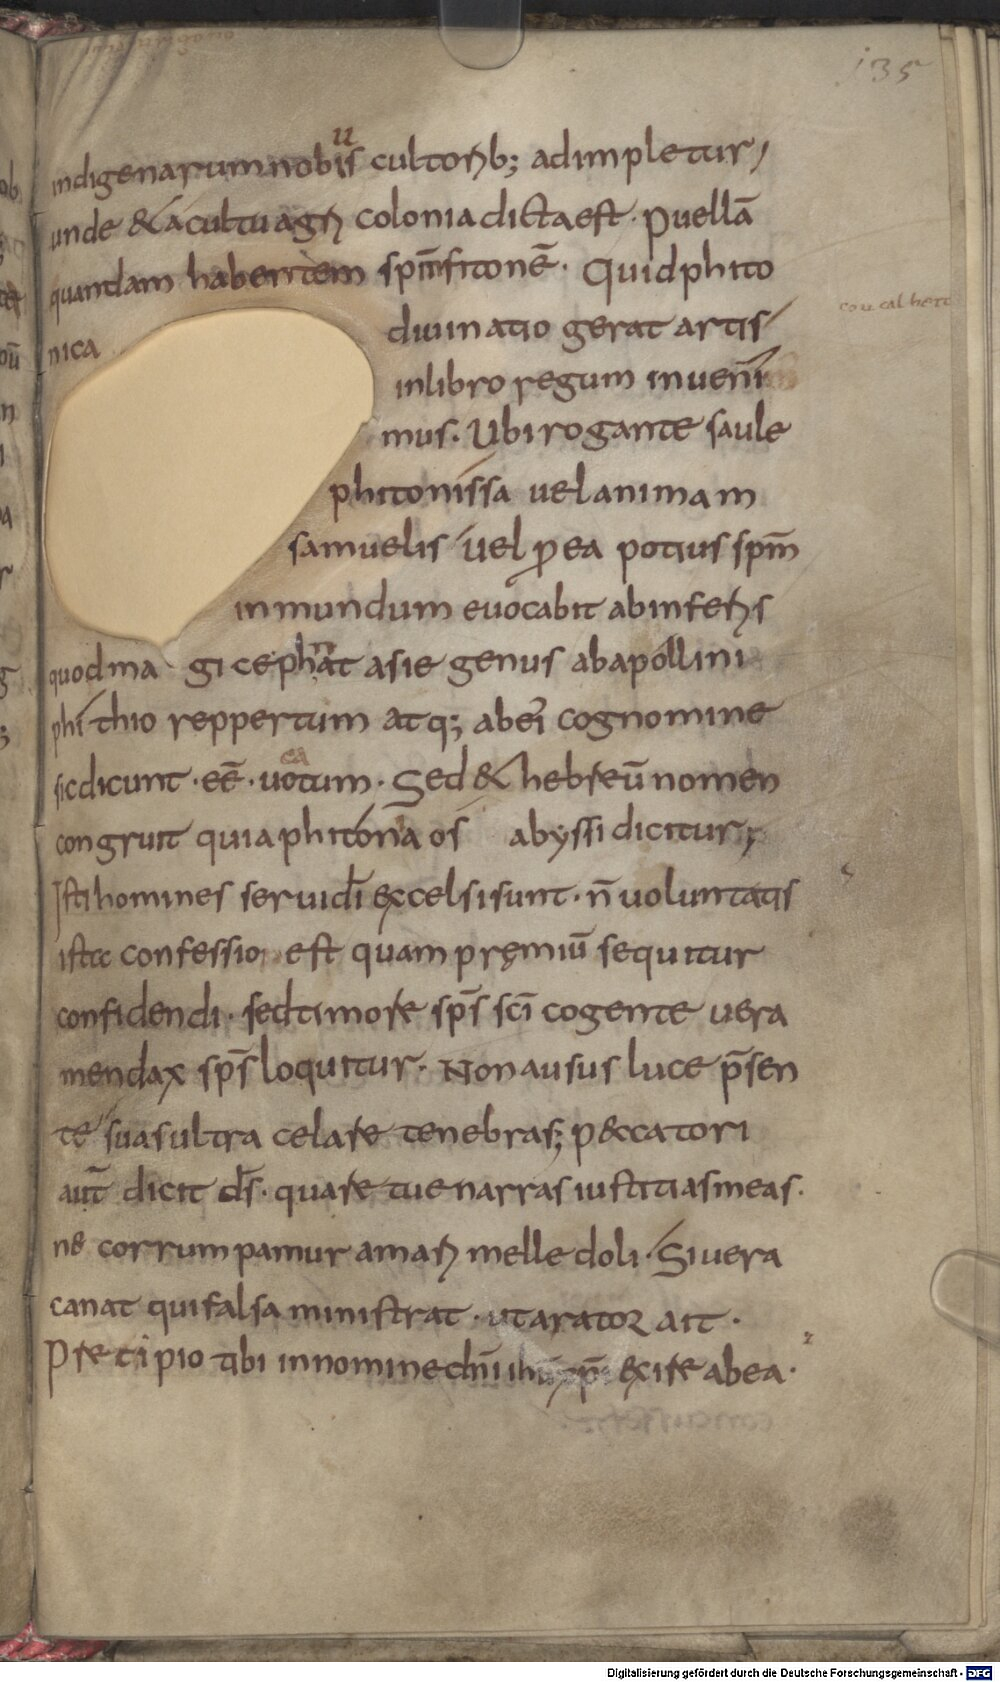 135
indigenarum nobis cultoꝝb; adimpletur;
u
unde & a cultu agꝝ colonia dicta est. Puellā
quandam habentem spm̄ fitonē. Quid phito
nica divinatio gerat artis
coucalheit
in libro regum invenı̄
mus. Ubi rogante saule
phitonissa vel animam
samuelis vel ꝓ ea potius spm̄
inmundum evocabit ab infeꝝs
quod magi cephn̄at asie genus ab apollini
phithio reppertum atq; ab eı̄ cognomine
sic dicunt · eē · votum · Sed & hebreū nomen
ea
congruit quia phitonā os abyssi dicitur;
Isti homines servi dī excelsi sunt · n̄ voluntatis
ista confessio est quam pręmiū sequitur
confidendi · sed timore sps̄ scī cogente vera
mendax sps̄ loquitur · Non ausus luce p̄sen
te suas ultra celare tenebras; p&ccatori
aut̄ dicit ds̄ · quare tu enarras iustitias meas ·
ne corrumpamur amaꝝ melle doli · Si vera
canat qui falsa ministrat · ut arator ait ·
Precipio tibi in nomine dnī ihū xpī exire ab ea ·
Digitalisierung gefördert durch die Deutsche Forschungsgemeinschaft - DFG